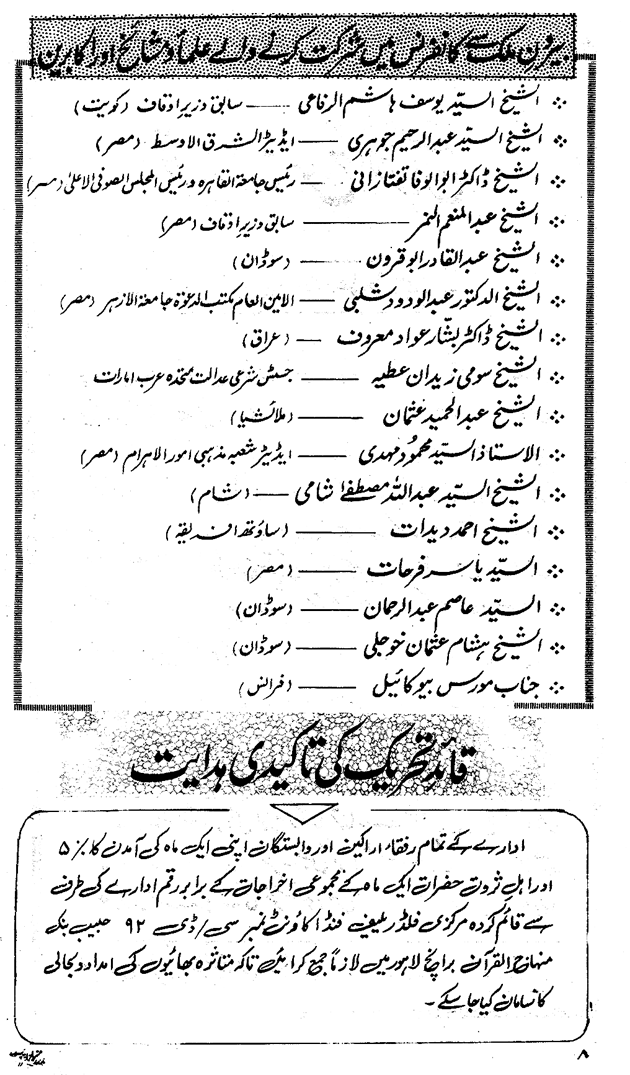 بیرون ملک سے کانفرنس میں شرکت کرنے والے علماء و مشائخ اور اکابرین
الشیخ السیّد یوسف ہاشم الرفاعی —— سابق وزیر اوقاف (کویت)
الشیخ السیّد عبدالرحیم جوہری —— ایڈیٹر الشرق الاوسط (مصر)
الشیخ ڈاکٹر ابوالوفا تفتازانی —— رئیس جامعۃ القاہرہ و رئیس المجلس الصوفی الاعلیٰ (مصر)
الشیخ عبدالمنعم النمر —— سابق وزیر اوقاف (مصر)
الشیخ عبدالقادر ابوقرون (سوڈان)
الشیخ الدکتور عبدالودود شلبی —— الامین العام مکتب الدعوۃ جامعۃ الازہر (مصر)
الشیخ ڈاکٹر بشّار عواد معروف —— (عراق)
الشیخ سومی زیدان عطیہ —— جسٹس شرعی عدالت متحدہ عرب امارات
الشیخ عبدالحمید عثمان —— (ملائشیا)
الاستاذ السیّد محمود مہدی —— ایڈیٹر شعبہ مذہبی امور الاہرام (مصر)
الشیخ السیّد عبداللہ مصطفےٰ شامی —— (شام)
الشیخ احمد دیدات —— (ساؤتھ افریقہ)
السیّد یاسر فرحات —— (مصر)
السیّد عاصم عبدالرحمان —— (سوڈان)
الشیخ ہشام عثمان خوجلی —— (سوڈان)
جناب مورس بیوکائیل —— (فرانس)
قائدِ تحریک کی تاکیدی ہدایت
ادارے کے تمام رفقاء اراکین اور وابستگان اپنی ایک ماہ کی آمدن کا ۵٪
اور اہلِ ثروت حضرات ایک ماہ کے مجموعی اخراجات کے برابر رقم ادارے کی طرف
سے قائم کردہ مرکزی فلڈ ریلیف فنڈ اکاؤنٹ نمبر سی/ڈی ۹۲ حبیب بنک
منہاج القرآن برانچ لاہور میں لازماً جمع کرائیں تاکہ متاثرہ بھائیوں کی امداد و بحالی
کا سامان کیا جا سکے۔
۸